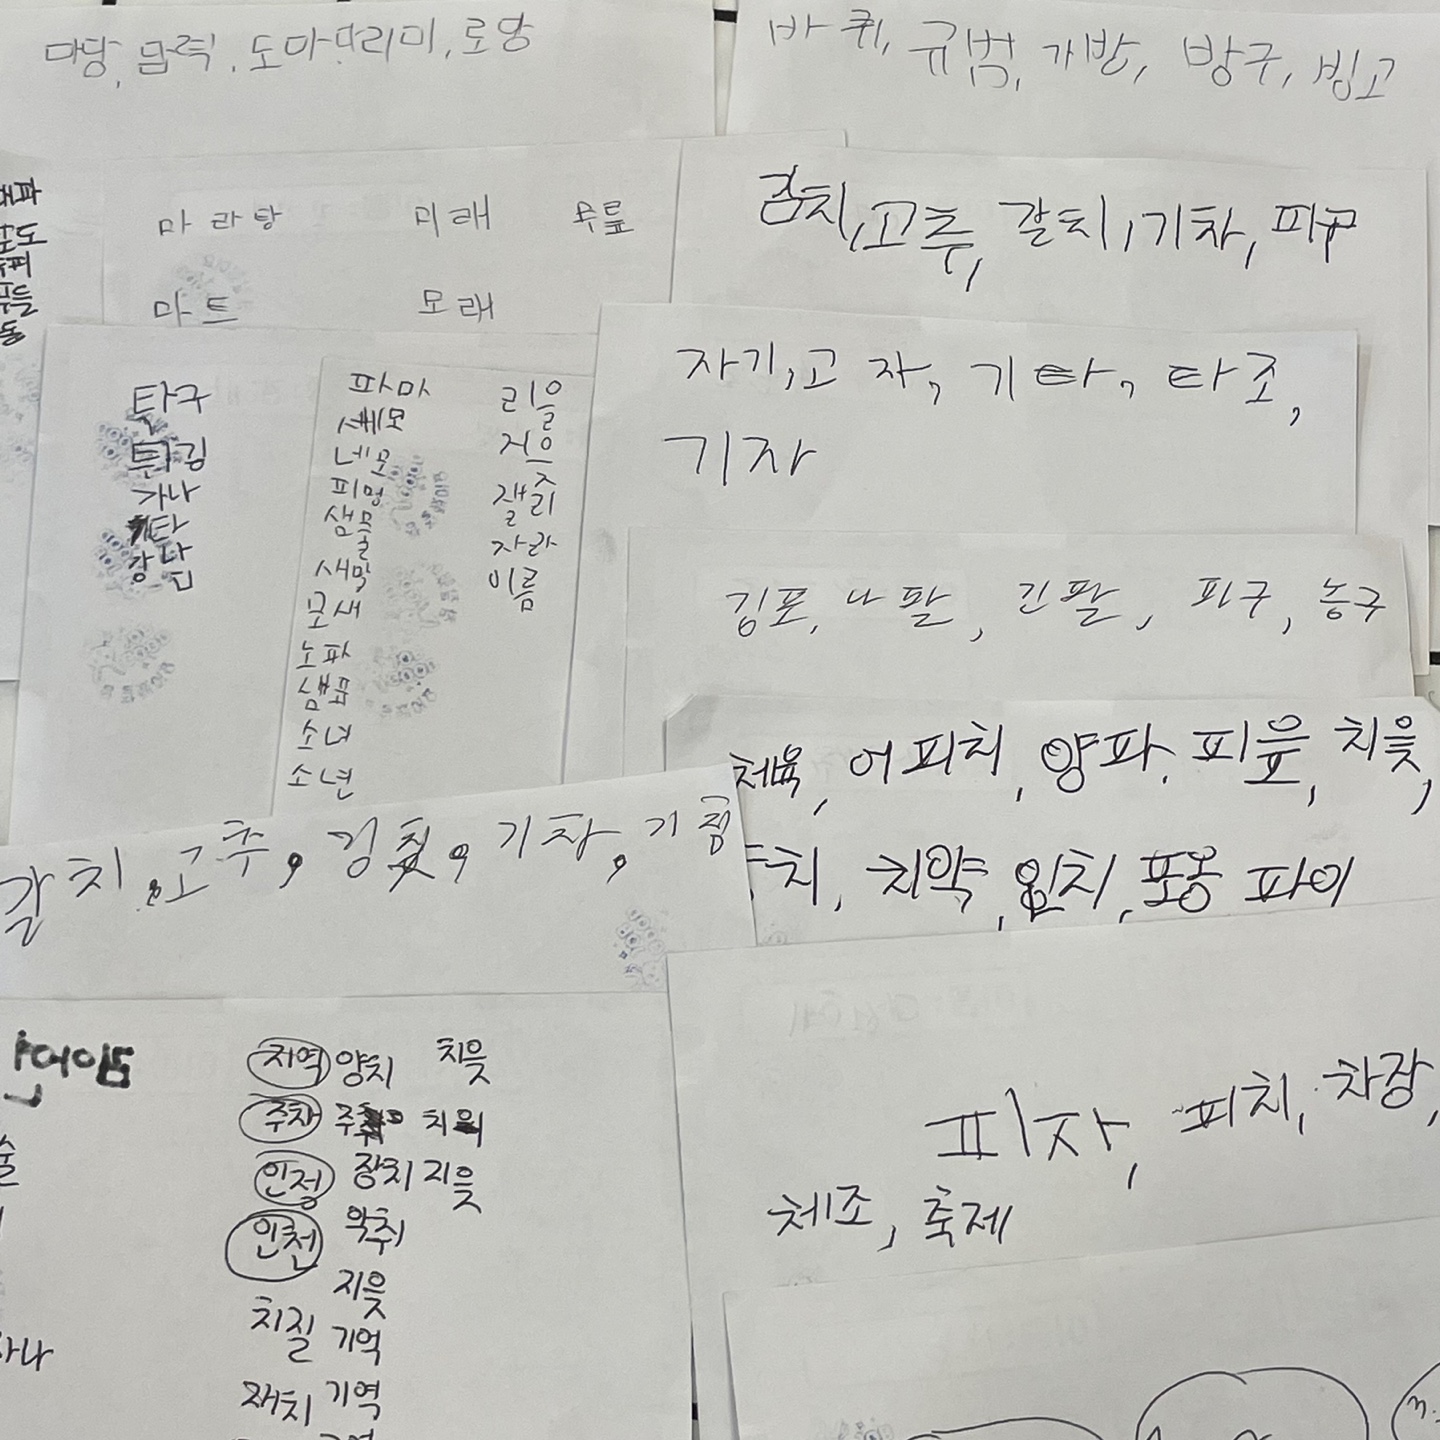 마당, 담력, 도마, 마리미, 로망
바퀴, 규범, 가방, 방구, 빙고
마라탕 미래 무릎
마트 모래
김치, 고추, 갈치, 기차, 피구
자기, 고자, 기타, 타조,
기자
탁구
튀김
가나
기타
강남
파마
세모
네모
피멍
샘물
새막
모새
노파
샘표
소녀
소년
리을
거울
젤리
자라
이름
김포, 나팔, 긴팔, 피구, 농구
체육, 어피치, 양파, 피읖, 치읓,
치, 치약, 음치, 포옹 파이
갈치, 고추, 김칫, 기장, 기침
지역 양치 치읓
주차
인정 장치 지읒
인천 악취
지읒
치질 기억
재치 기역
피자, 피치, 차장,
체조, 축제